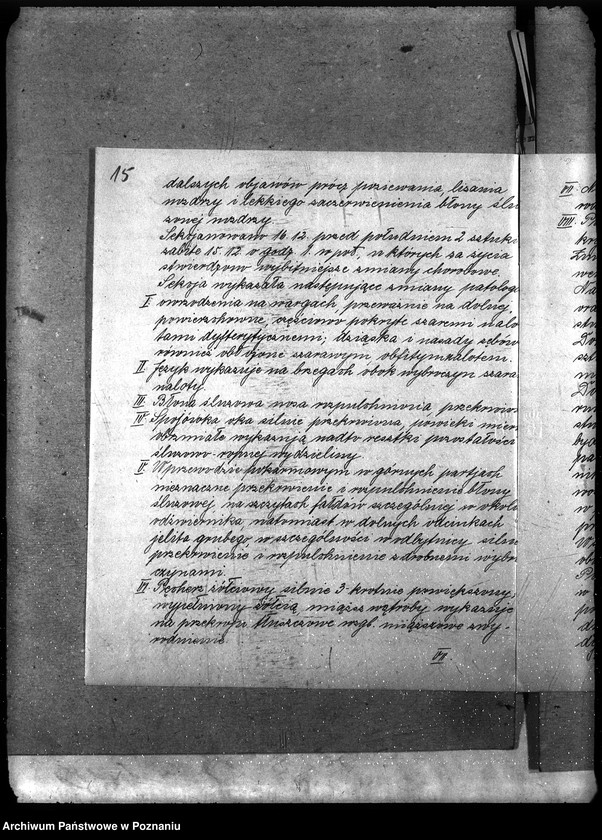 15
dalszych objawów prócz poziewania, lizania
nozdrzy i lekkiego zaczerwienienia błony ślu
zowej nozdrzy.
Sekcjonowano 16.12. przed południem 2 sztuki
zabite 15.12. o godz. 1. w poł., u których za życia
stwierdzono wybitniejsze zmiany chorobowe.
Sekcja wykazała następujące zmiany patolog
I. owrzodzenia na wargach, przeważnie na dolnej,
powierzchowne, częściowo pokryte szaremi nalo
tami dyfterytycznemi; dziąsła i nasady zębów
również obłożone szarawym obfitym nalotem.
II. Język wykazuje na brzegach obok wyboczyn szara
naloty.
III. Błona śluzowa nosa rozpulchniona, przekrwion
IV. Spojówka oka silnie przekrwiona, powieki nieco
obrzmiałe wykazują nadto resztki pozostałości
śluzowo-ropnej wydzieliny.
V. W przewodzie pokarmowym w górnych partjach
nieznaczne przekrwienie i rozpulchnienie błony
śluzowej, na szczytach fałdów szczególniej w okolic
odźwiernika, natomiast w dolnych odcinkach
jelita grubego, w szczególności w odbytnicy, silne
przekrwienie i rozpulchnienie z drobnemi wybro
czynami.
VI. Pęcherz żółciowy silnie 3-krotnie powiększony,
wypełniony żółcią, miąższ wątroby wykazuje
na przekroju tłuszczowe wzgl. miąższowe zwy-
rodnienie.
VII.
VII.
VIII.
Archiwum Państwowe w Poznaniu